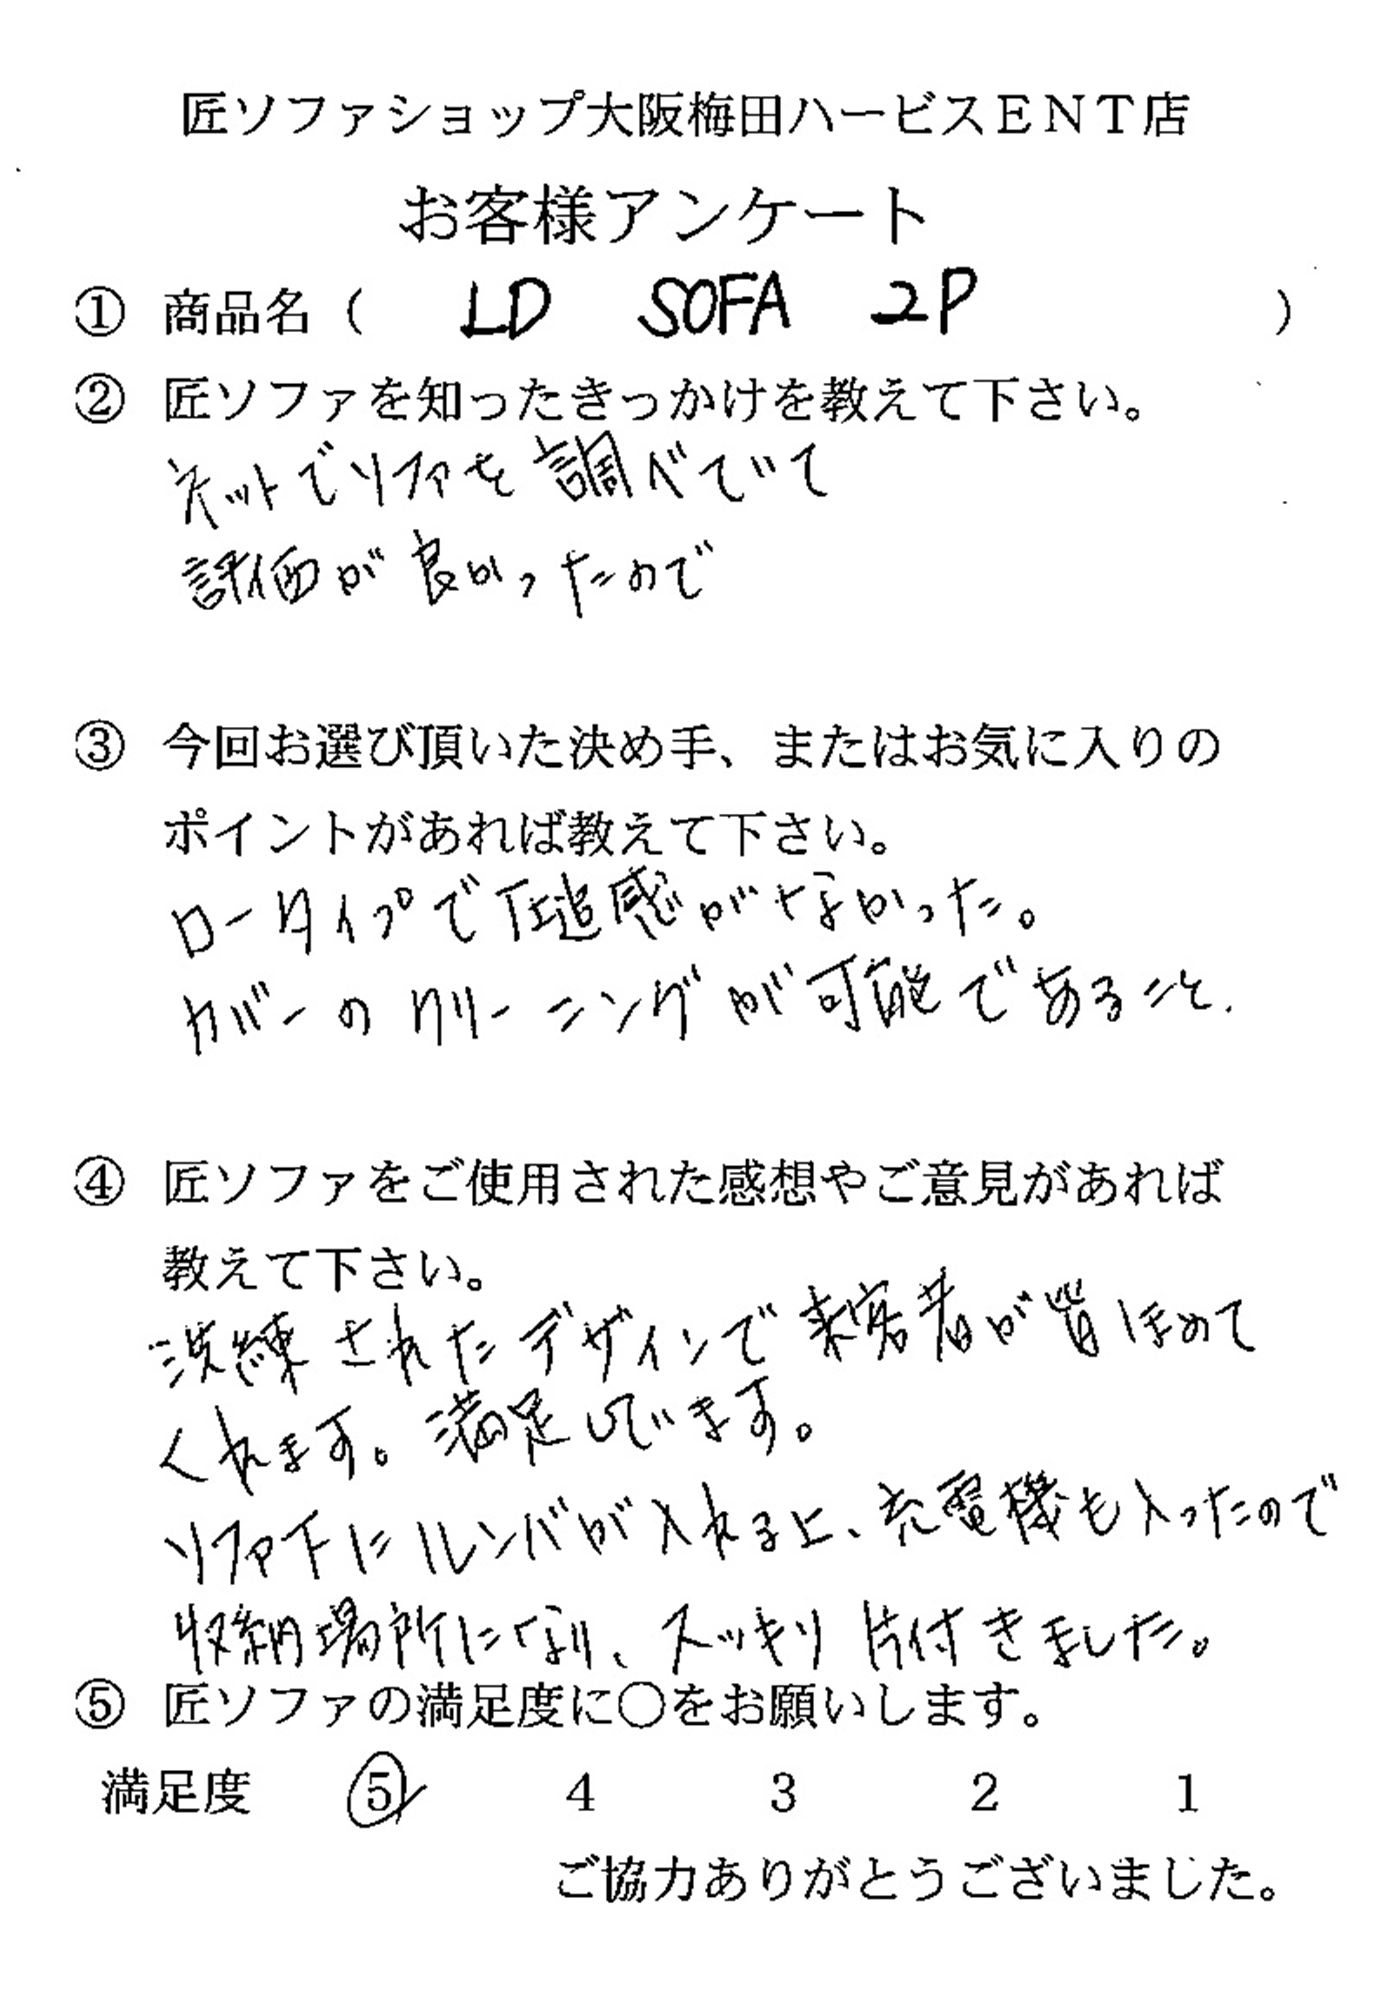 匠ソファショップ大阪梅田ハービスＥＮＴ店
お客様アンケート
① 商品名（ LD SOFA 2P ）
② 匠ソファを知ったきっかけを教えて下さい。
ネットでソファを調べていて
評価が良かったので
③ 今回お選び頂いた決め手、またはお気に入りの
ポイントがあれば教えて下さい。
ロータイプで圧迫感がなかった。
カバーのクリーニングが可能であること.
④ 匠ソファをご使用された感想やご意見があれば
教えて下さい。
洗練されたデザインで来客者が皆ほめて
くれます。満足しています。
ソファ下にルンバが入れる上、充電機も入ったので
収納場所になり、スッキリ片付きました。
⑤ 匠ソファの満足度に○をお願いします。
満足度 5 4 3 2 1
ご協力ありがとうございました。